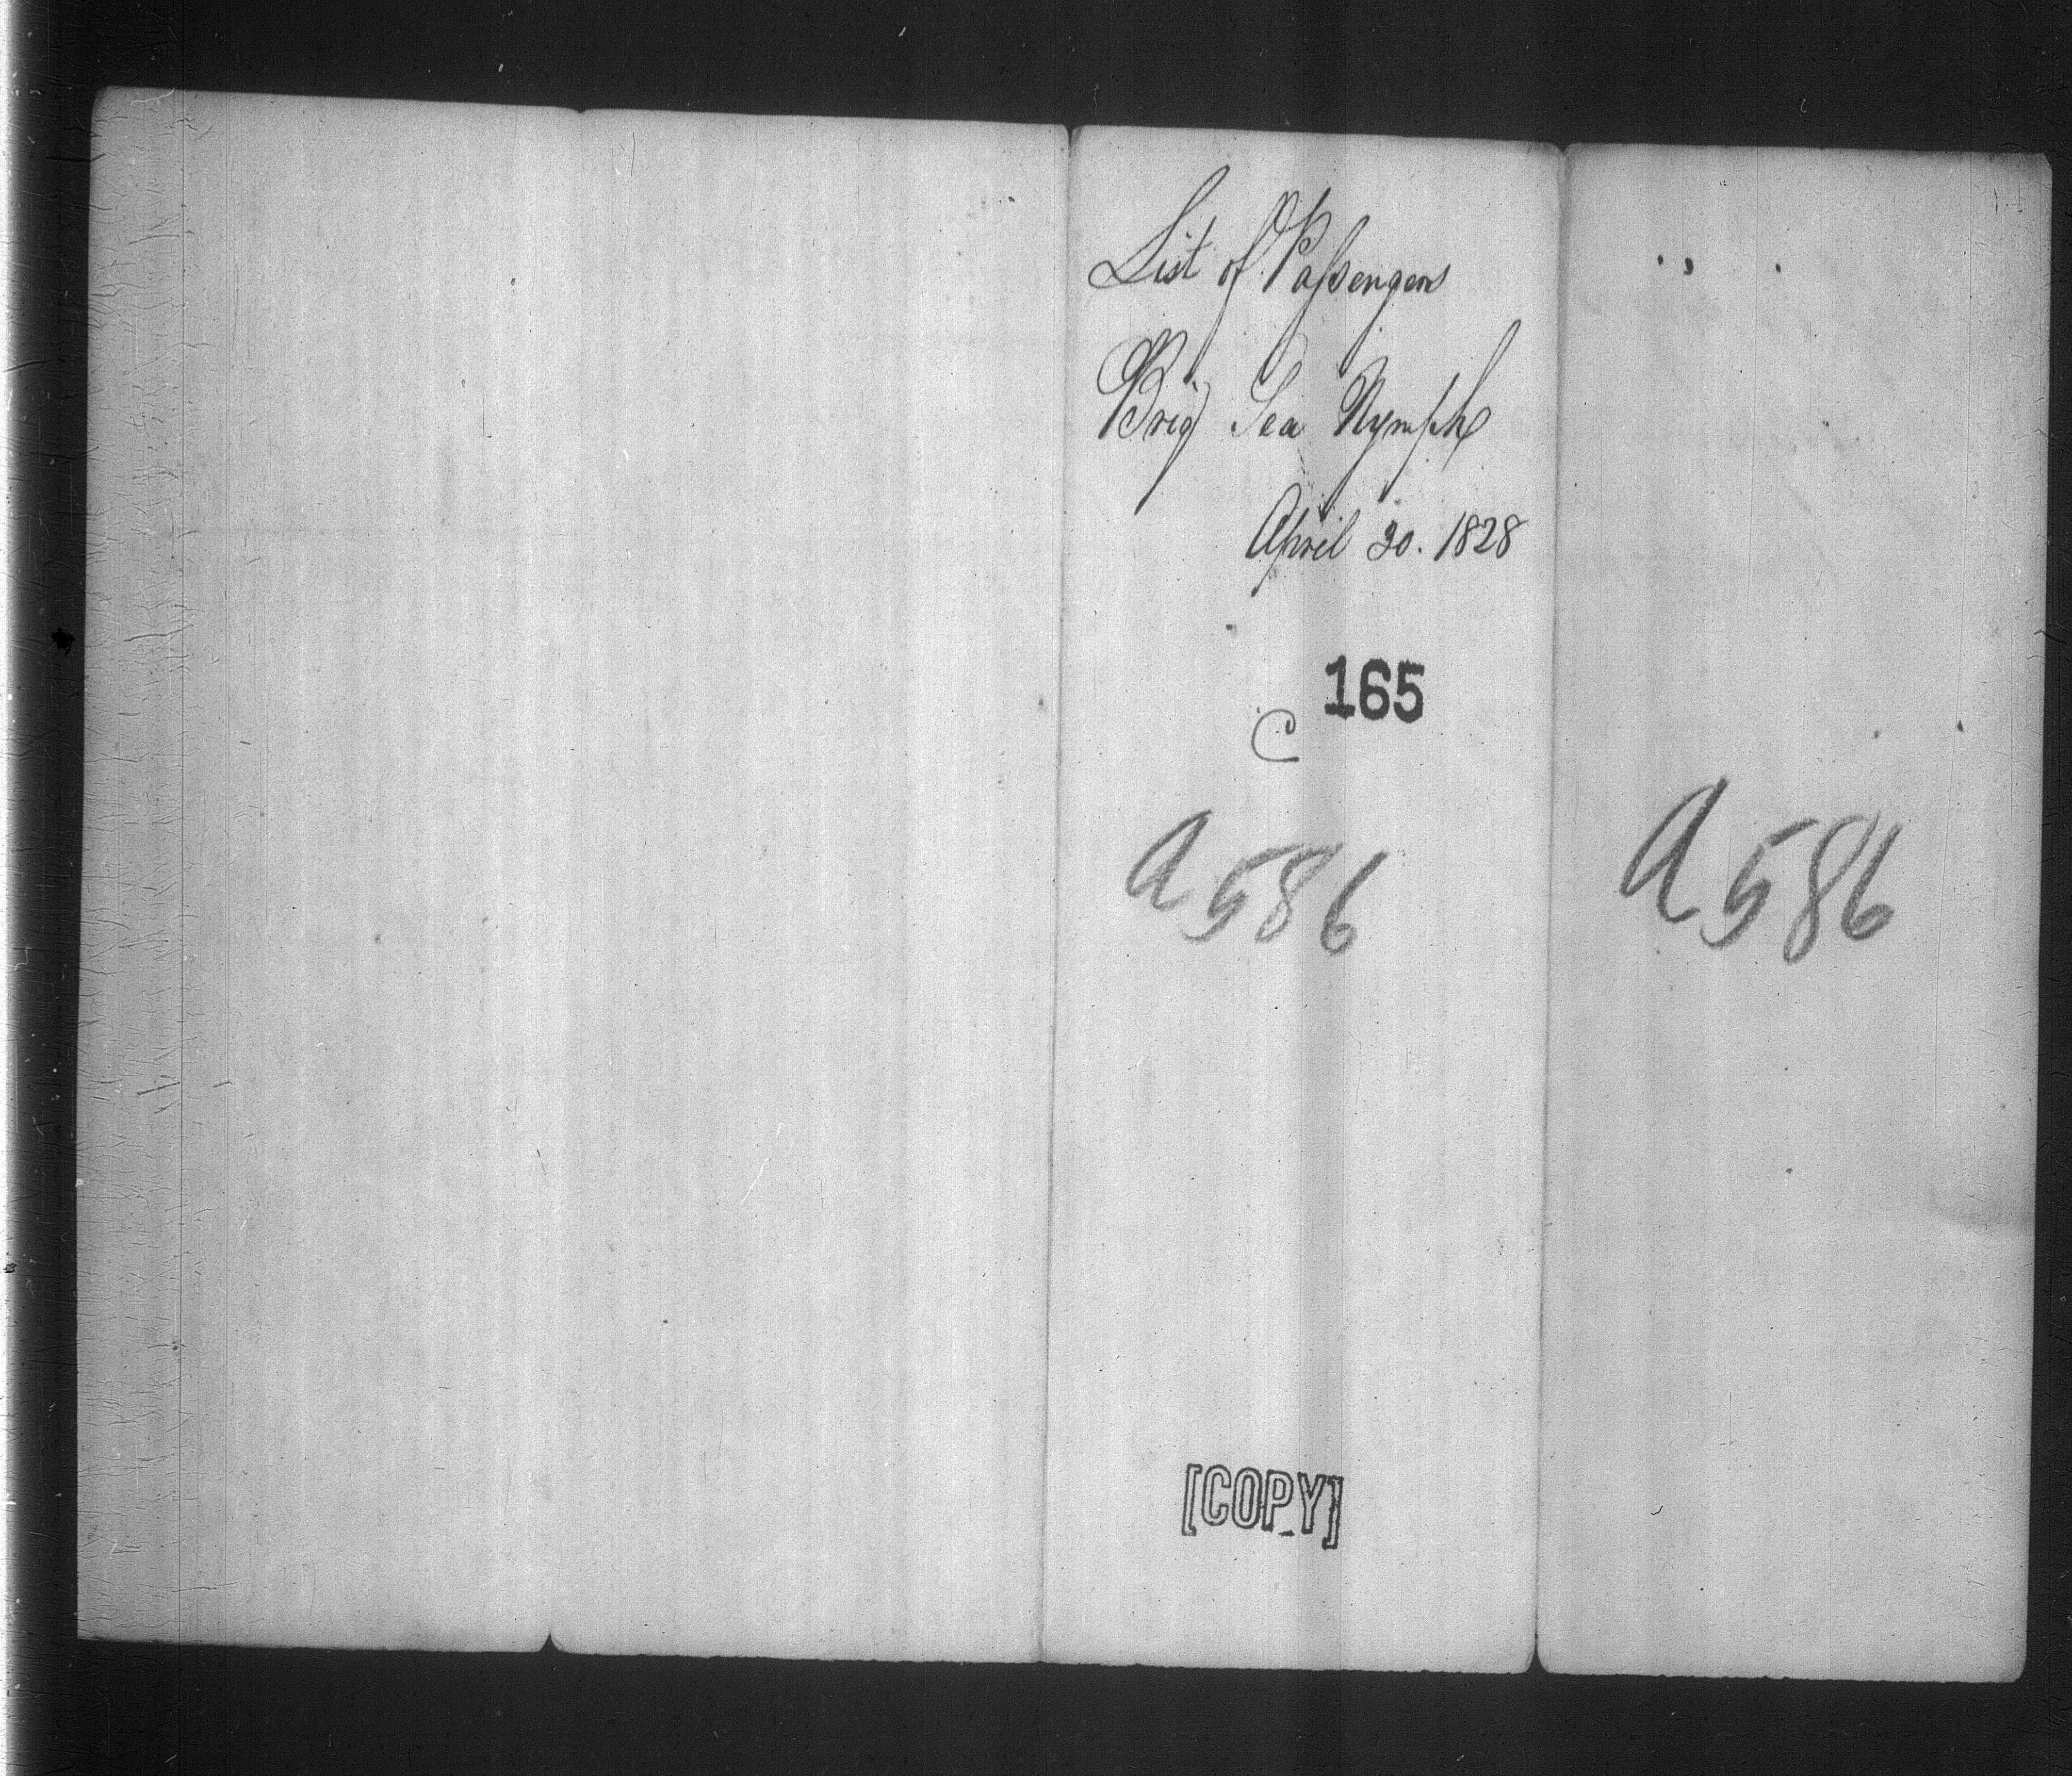 List of Passengers
Brig Sea Nymph
April 30. 1828
165
C
A 586
A 586
[COPY]